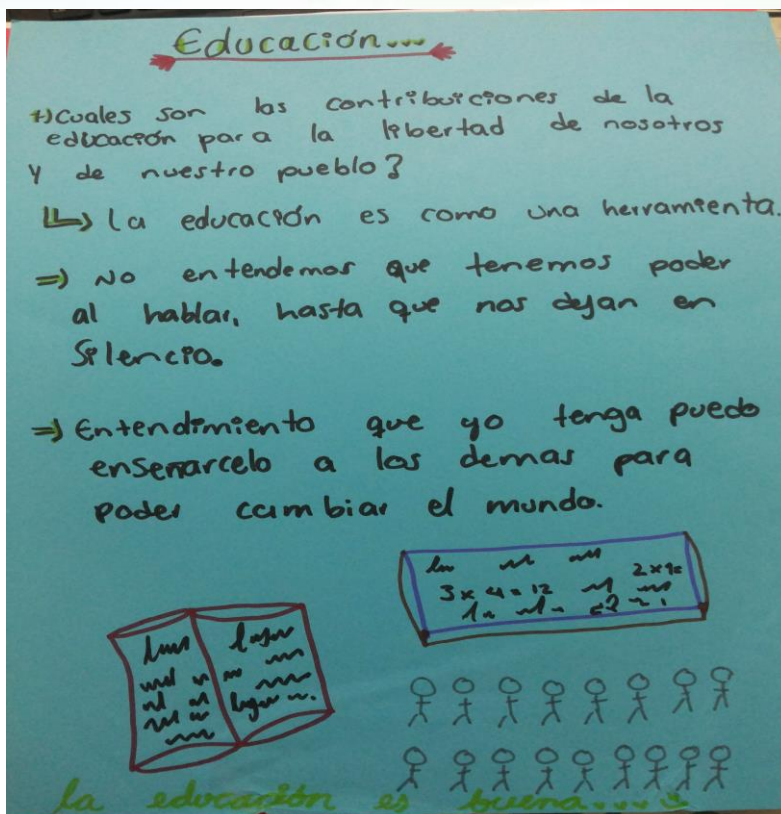 Educación...
1) Cuales son las contribuciones de la
educación para la libertad de nosotros
y de nuestro pueblo?
La educación es como una herramienta.
=> No entendemos que tenemos poder
al hablar, hasta que nos dejan en
silencio.
=> Entendimiento que yo tenga puedo
enseñarcelo a los demas para
poder cambiar el mundo.
3x4=12
la educación es buena....